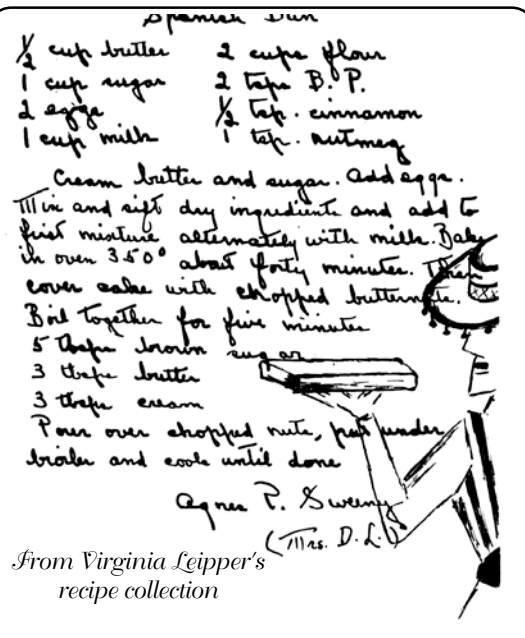 Spanish Bun
½ cup butter
1 cup sugar
2 eggs
1 cup milk
2 cups flour
2 tsps B. P.
½ tsp. cinnamon
1 tsp. nutmeg
Cream butter and sugar. Add eggs.
Mix and sift dry ingredients and add to
first mixture alternately with milk. Bake
in oven 350° about forty minutes. Then
cover cake with chopped butternuts.
Boil together for five minutes
5 tbsps brown sugar
3 tbsps butter
3 tbsps cream
Pour over chopped nuts, put under
broiler and cook until done
Agnes P. Sweeny
(Mrs. D. L.)
From Virginia Leipper's
recipe collection